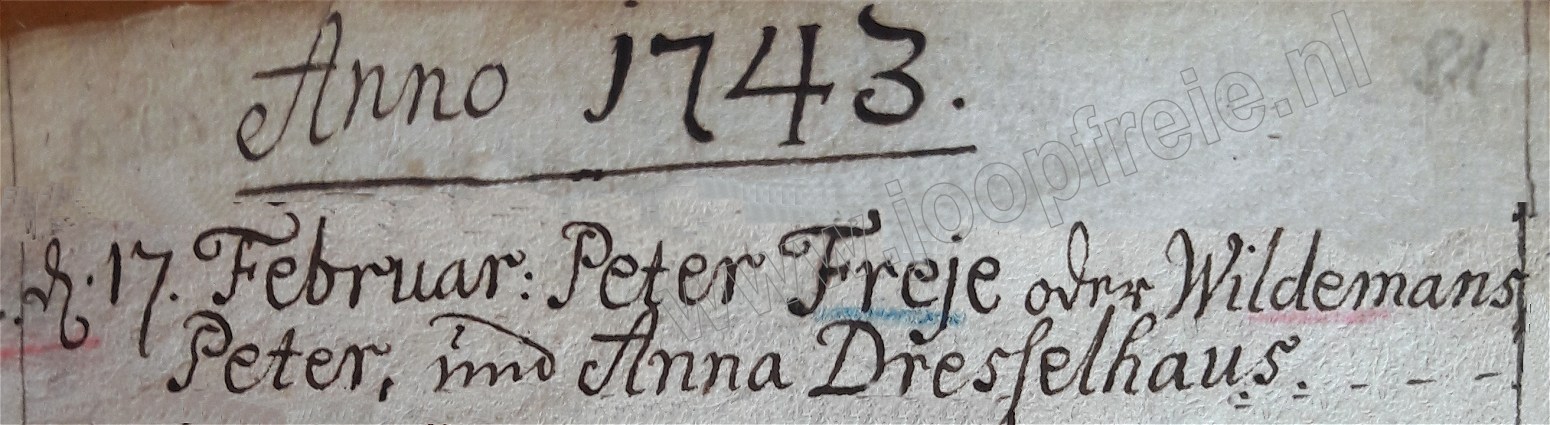 Anno 1743.
d. 17. Februar: Peter Freje oder Wildemans
Peter, und Anna Dresselhaus. - - - -
www.joopfreie.nl